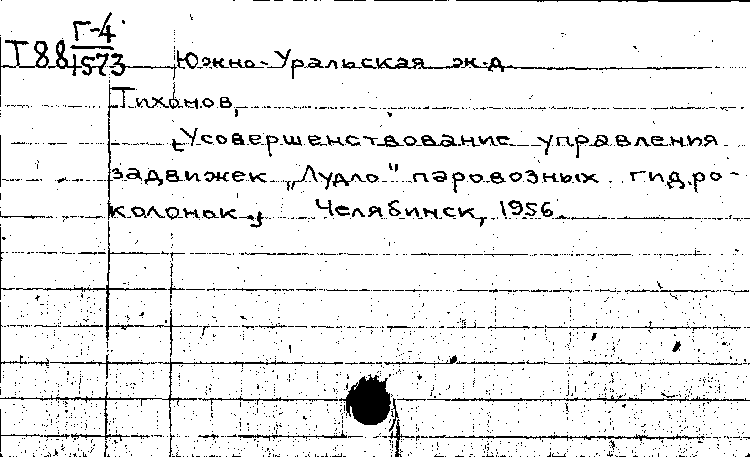 Г-4
Т88 1573 Южно-Уральская ж.д.
Тихонов,
[Усовершенствование управления
задвижек „Лудло" паровозных гидро-
колонок], Челябинск, 1956.